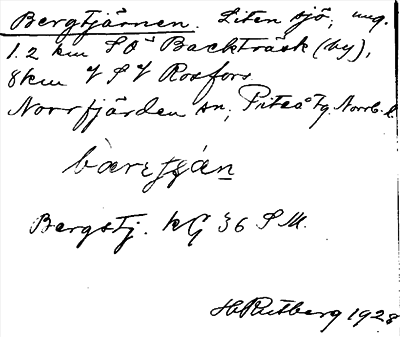 Bergtjärnen. Liten sjö, ung.
1.2 km SO Backträsk (by),
8 km V Rosfors
Norrfjärden sn, Piteå tg. Norrb. l.
Bergstj. kG 36 S M.
H Rutberg 1928